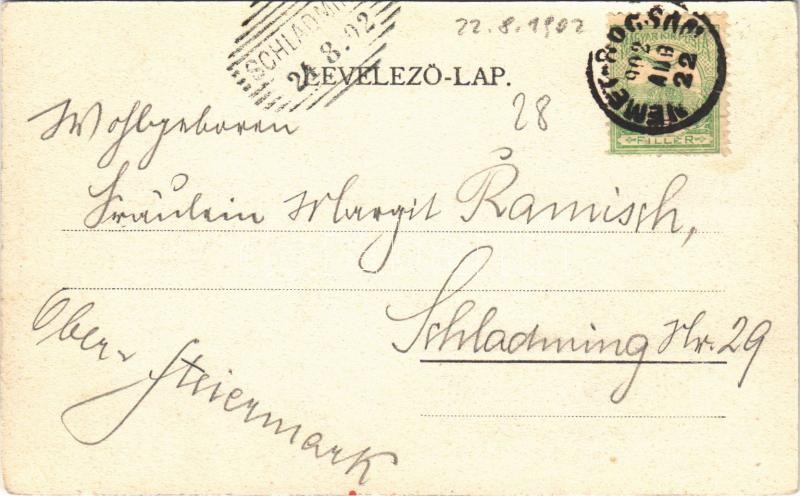 SCHLADMING
24.8.02
22.8.1902
LEVELEZŐ-LAP.
NÉMET-BOGSÁN
902
AUG
22
MAGYAR KIR. POSTA
FILLÉR
28
Wohlgeboren
Fräulein Margit Ramisch,
Schladming Nr. 29
Ober-Steiermark